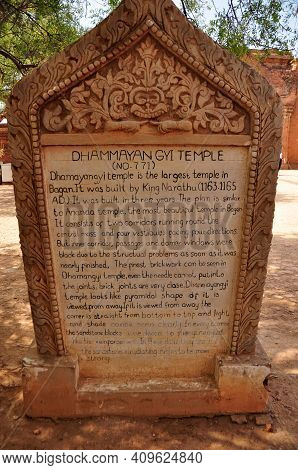 DHAMMAYANGYI TEMPLE
(NO-771)
Dhamayangyi temple is the largest temple in
Bagan. It was built by King Narathu (1163-1165
AD). It was built in three years. The plan is similar
to Ananda temple, the most beautiful temple in Bagan
It consists of two corridors running round the
central mass and four vestibules facing four directions.
But inner corridor, passage and dormar windows were
block due to the structural problems as soon as it was
nearly finished. The priest, brickwork can be seen in
Dhamangyi temple, even the needle cannot put into
the joints, brick joints are very close. Dhammayangyi
temple looks like pyramidal shape if it is
viewed from away. If it is viewed from away the
corner is straight from bottom to top and light
and shade
the sandstone blocks
like the
strong.